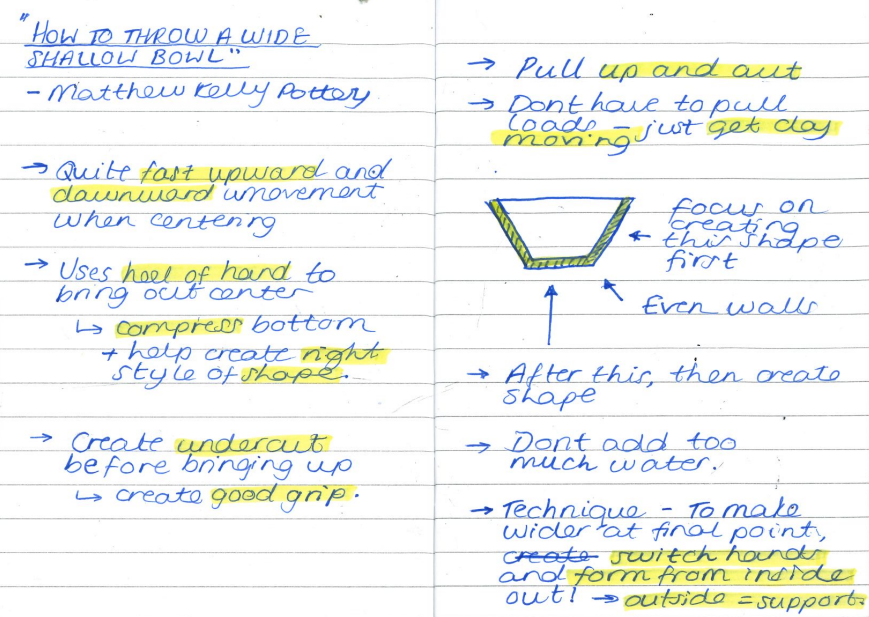 "HOW TO THROW A WIDE
SHALLOW BOWL"
- Matthew Kelly Pottery
→ Quite fast upward and
downward umovement
when centering
→ Uses heel of hand to
bring out center
↳ compress bottom
+ help create right
style of shape.
→ Create undercut
before bringing up
↳ create good grip.
→ Pull up and out
→ Dont have to pull
loads - just get clay
moving
focus on
creating
← this shape
first
Even walls
→ After this, then create
shape
→ Dont add too
much water.
→ Technique - To make
wider at final point,
create switch hands
and form from inside
out! → outside = support.